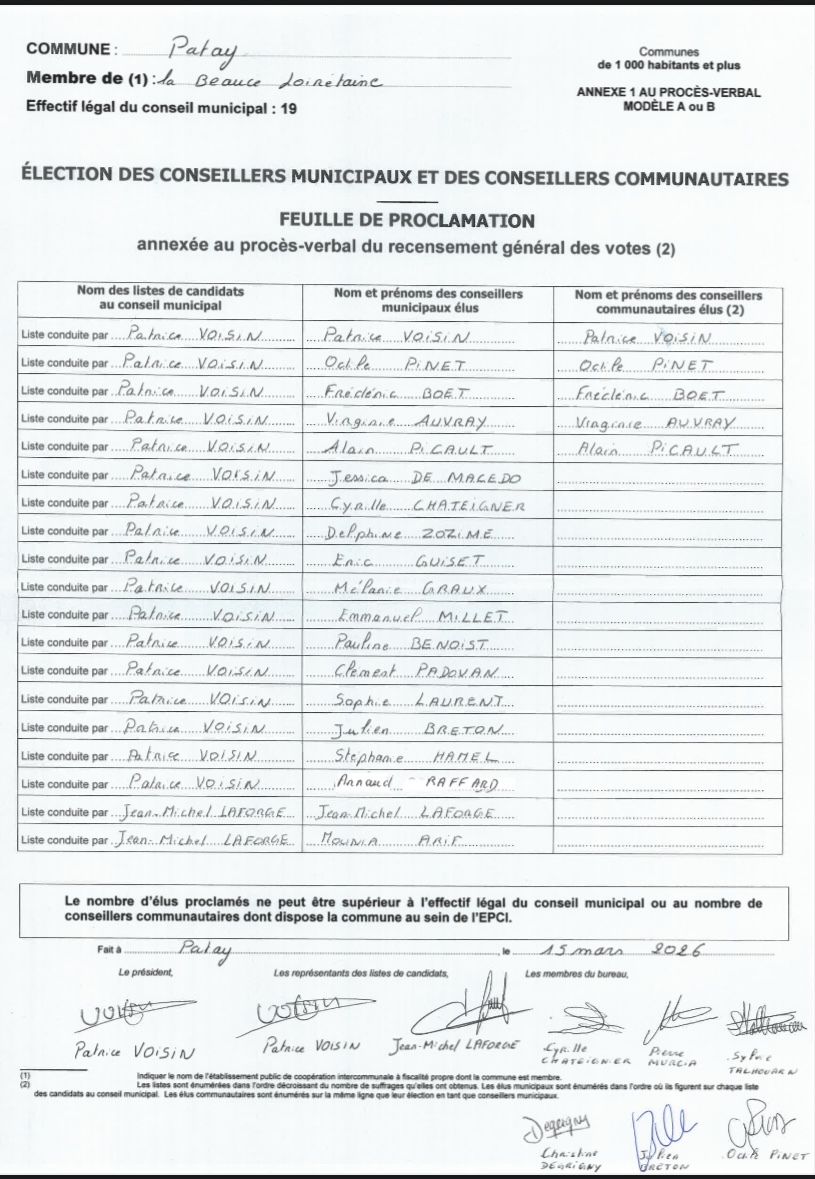 COMMUNE : Patay
Communes
de 1 000 habitants et plus
Membre de (1) : la Beauce Loirétaine
ANNEXE 1 AU PROCÈS-VERBAL
MODÈLE A ou B
Effectif légal du conseil municipal : 19
ÉLECTION DES CONSEILLERS MUNICIPAUX ET DES CONSEILLERS COMMUNAUTAIRES
FEUILLE DE PROCLAMATION
annexée au procès-verbal du recensement général des votes (2)
Nom des listes de candidats au conseil municipal Nom et prénoms des conseillers municipaux élus Nom et prénoms des conseillers communautaires élus (2)
Liste conduite par Patrice VOISIN Patrice VOISIN Patrice VOISIN
Liste conduite par Patrice VOISIN PINET PINET
Liste conduite par Patrice VOISIN Frédéric BOET Frédéric BOET
Liste conduite par Patrice VOISIN Virginie AUVRAY Virginie AUVRAY
Liste conduite par Patrice VOISIN Alain PICAULT Alain PICAULT
Liste conduite par Patrice VOISIN Jessica DE MACEDO
Liste conduite par Patrice VOISIN Cyrille CHATEIGNER
Liste conduite par Patrice VOISIN Delphine ZOZIME
Liste conduite par Patrice VOISIN Eric GUISET
Liste conduite par Patrice VOISIN Mélanie GRAUX
Liste conduite par Patrice VOISIN Emmanuel MILLET
Liste conduite par Patrice VOISIN Pauline BENOIST
Liste conduite par Patrice VOISIN Clément PADOVAN
Liste conduite par Patrice VOISIN Sophie LAURENT
Liste conduite par Patrice VOISIN Julien BRETON
Liste conduite par Patrice VOISIN Stéphanie HAMEL
Liste conduite par Patrice VOISIN Arnaud RAFFARD
Liste conduite par Jean-Michel LAFORGE Jean-Michel LAFORGE
Liste conduite par Jean-Michel LAFORGE MOUNIA ARIF
Le nombre d'élus proclamés ne peut être supérieur à l'effectif légal du conseil municipal ou au nombre de
conseillers communautaires dont dispose la commune au sein de l'EPCI.
Fait à Patay, le 15 mars 2026
Le président, Les représentants des listes de candidats, Les membres du bureau,
VOISIN VOISIN
Patrice VOISIN Patrice VOISIN Jean-Michel LAFORGE Cyrille CHATEIGNIER Pierre MURCIA TALHOUARN
(1) Indiquer le nom de l'établissement public de coopération intercommunale à fiscalité propre dont la commune est membre.
(2) Les listes sont énumérées dans l'ordre décroissant du nombre de suffrages qu'elles ont obtenus. Les élus municipaux sont énumérés dans l'ordre où ils figurent sur chaque liste
des candidats au conseil municipal. Les élus communautaires sont énumérés sur la même ligne que leur élection en tant que conseillers municipaux.
Degrigny
Christine DEGRIGNY Julien BRETON PINET